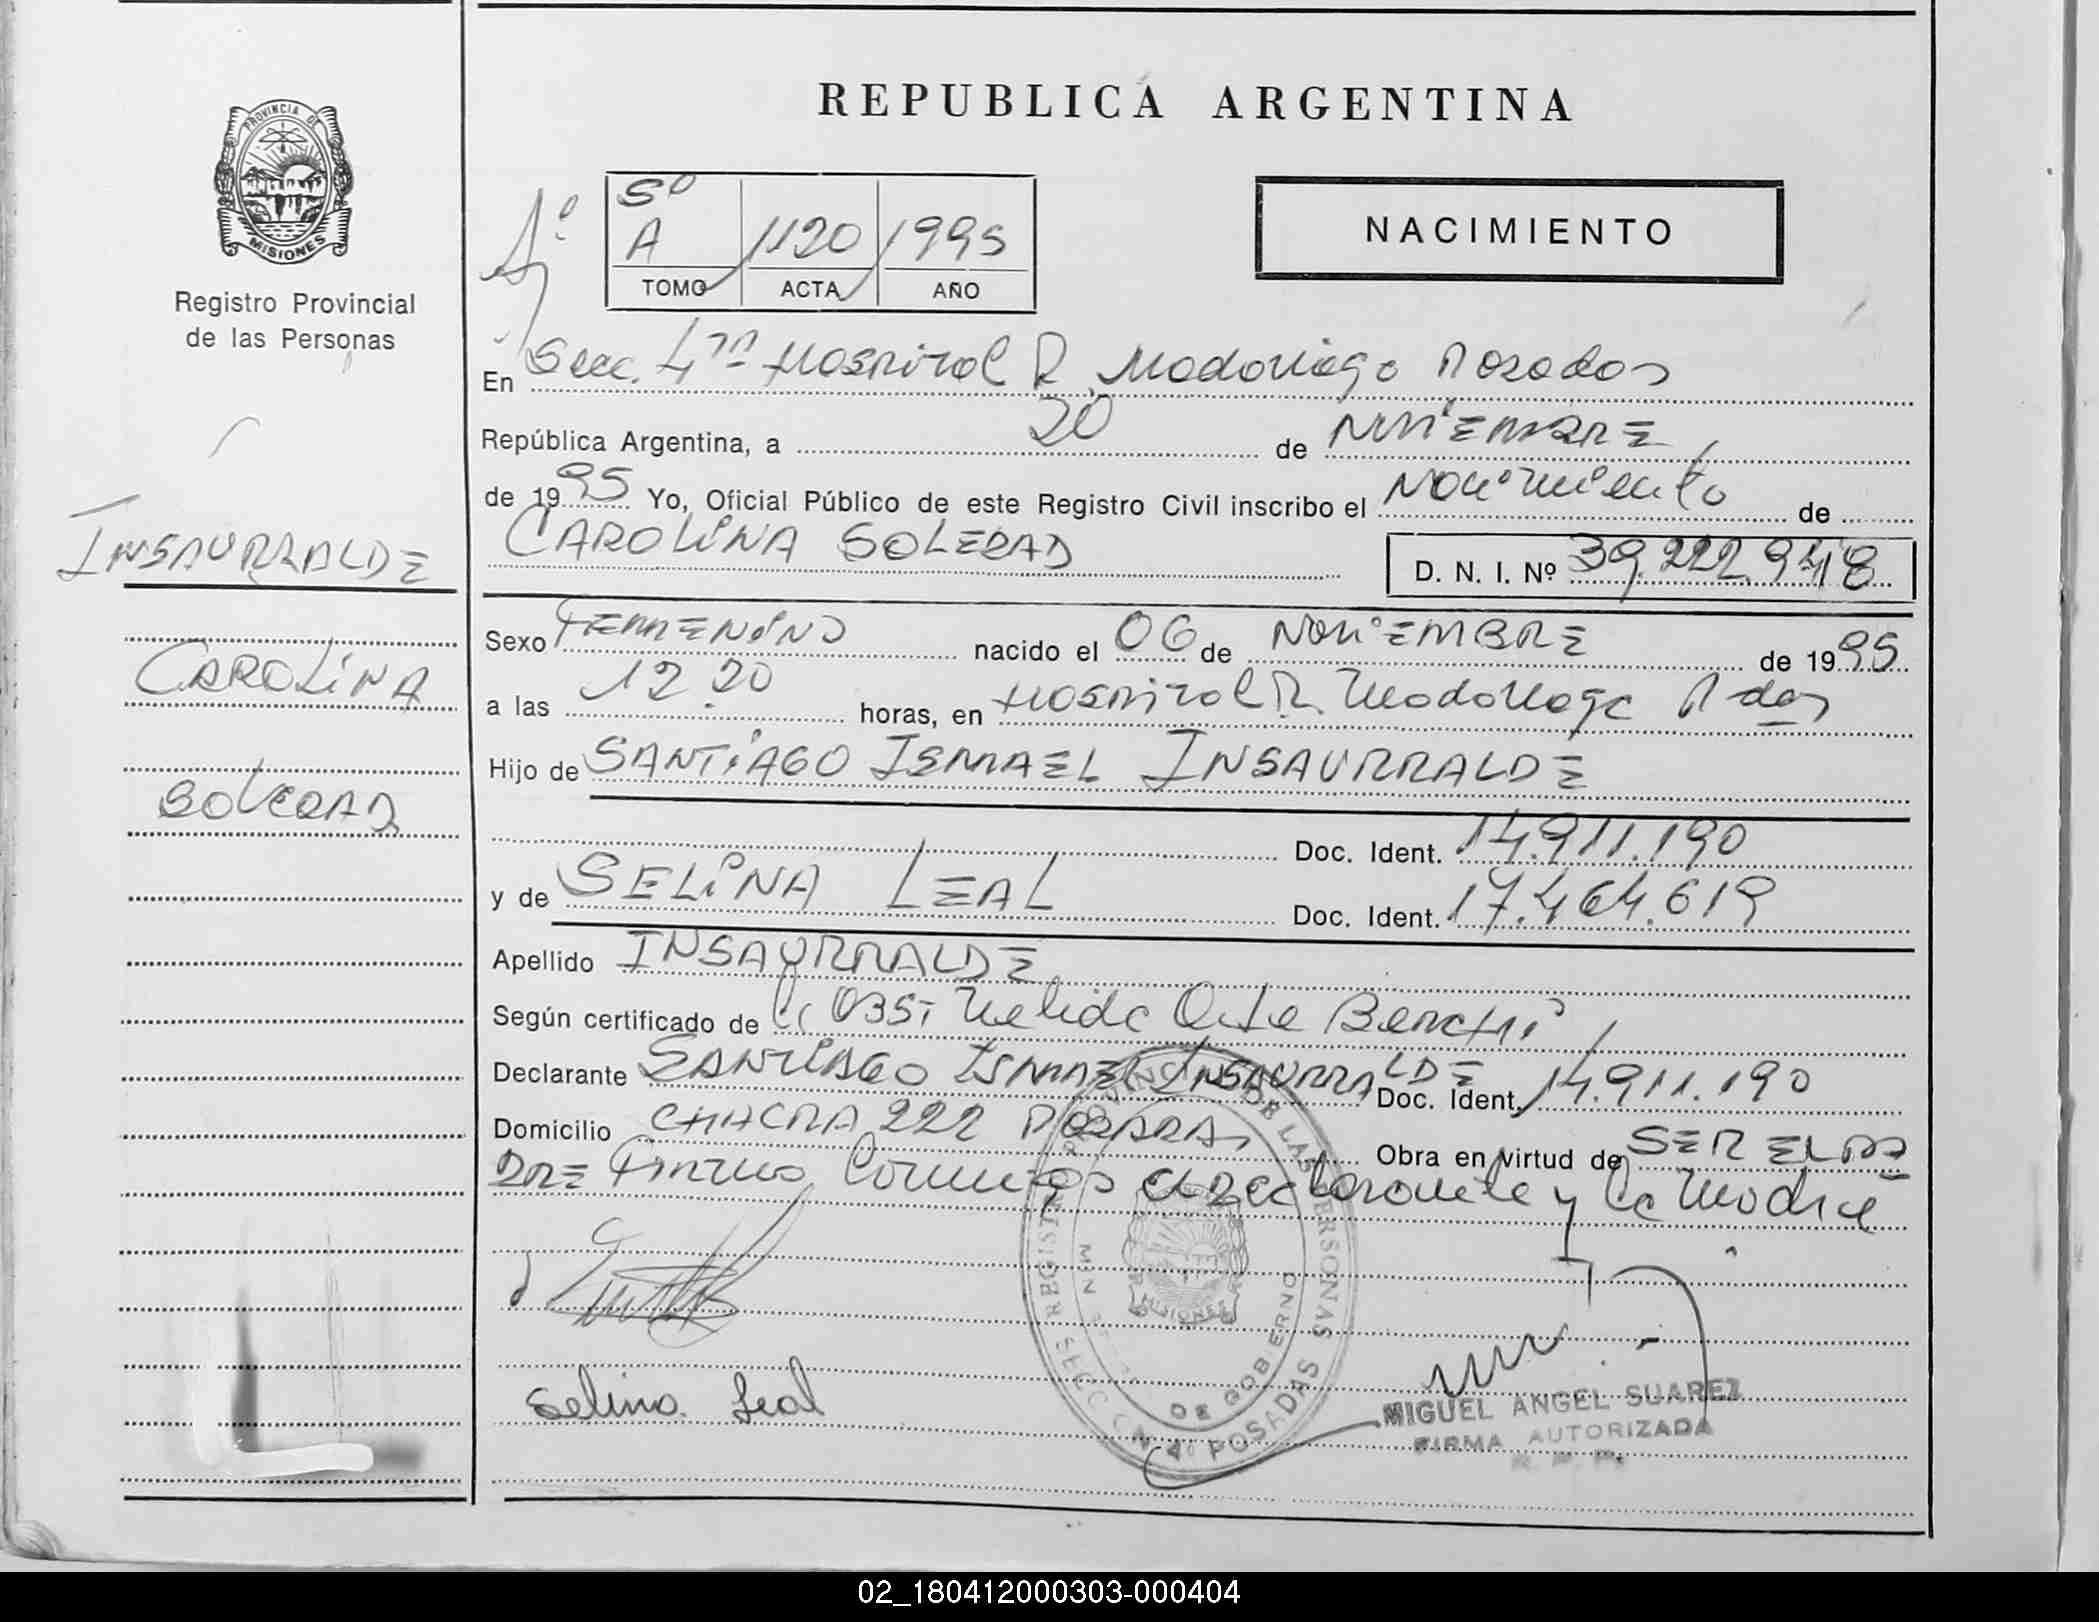 REPUBLICA ARGENTINA
PROVINCIA DE
MISIONES
Registro Provincial
de las Personas
Sº
A 1120 1995
TOMO ACTA AÑO
NACIMIENTO
En Secc. 4ta Hospital R. Madariaga Posadas
República Argentina, a 20 de NOViEMBRE
de 1995 Yo, Oficial Público de este Registro Civil inscribo el Nacimiento de
INSAURRALDE
CAROLiNA SOLEDAD
D. N. I. Nº 39.222.948
Sexo FEMENiNO nacido el 06 de NOViEMBRE de 1995
CAROLiNA
a las 12.20 horas, en Hospital R. Madariaga Pdas
Hijo de SANTiAGO ISMAEL INSAURRALDE
SOLEDAD
Doc. Ident. 14.911.190
y de SELiNA LEAL Doc. Ident. 17.464.619
Apellido INSAURRALDE
Según certificado de la Obst. Nelida
Declarante SANTiAGO ISMAEL INSAURRALDE Doc. Ident. 14.911.190
Domicilio CHACRA 222 POSADAS Obra en virtud de SER EL PA
DRE Firman Conmigo el declarante y la Madre
Selina Leal
REGISTRO PROVINCIAL DE LAS PERSONAS
MISIONES
DE GOBIERNO
SECCION 4º POSADAS
MIGUEL ANGEL SUAREZ
FIRMA AUTORIZADA
02_180412000303-000404